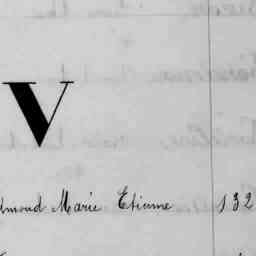 V
dmond Marie Etienne 132